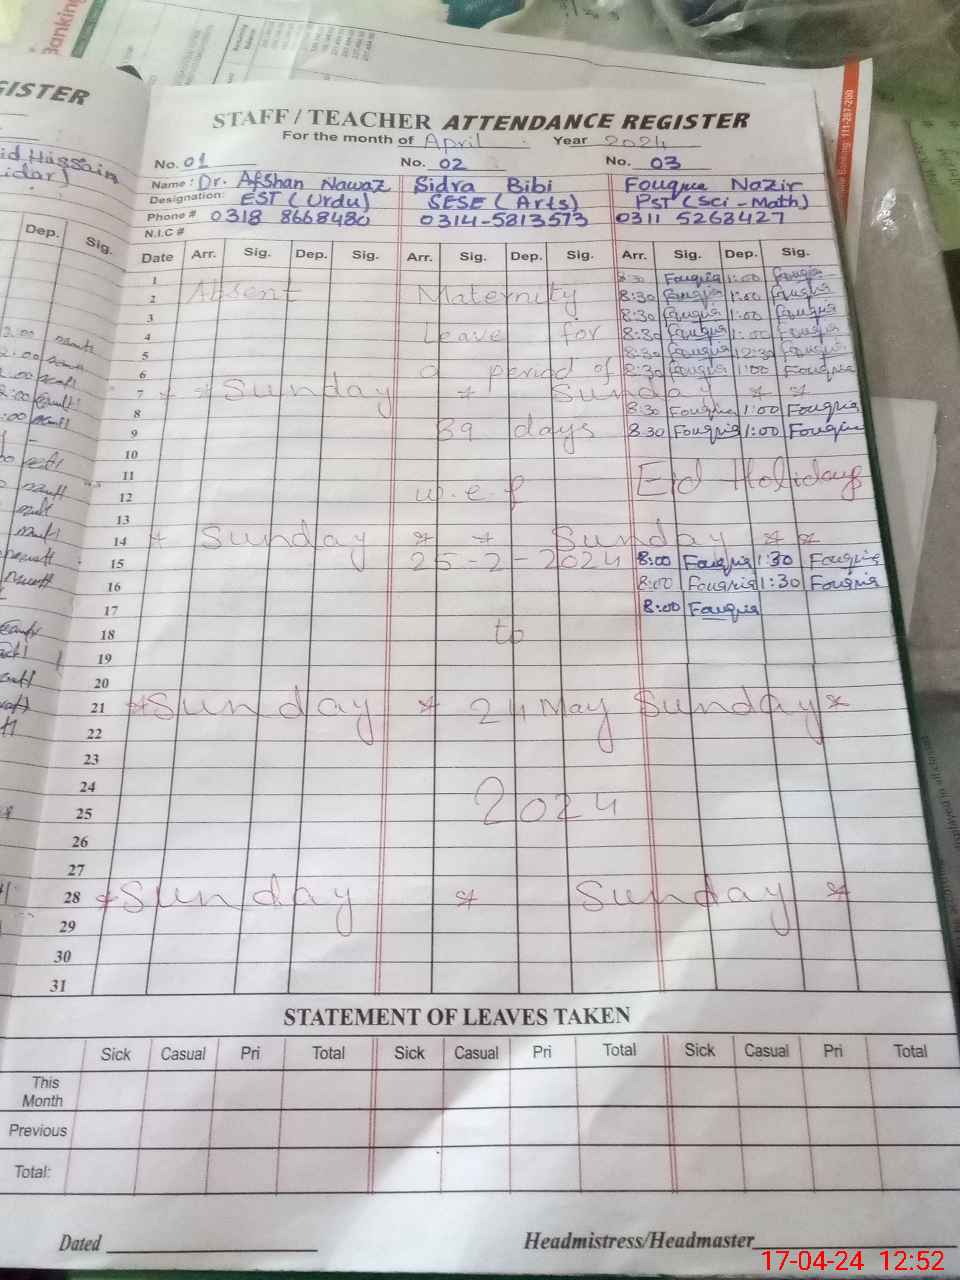 STAFF / TEACHER ATTENDANCE REGISTER
For the month of April Year 2024
No. 01 No. 02 No. 03
Name: Dr. Afshan Nawaz Sidra Bibi Fouqia Nazir
Designation: EST (Urdu) SESE (Arts) PST (Sci - Math)
Phone # 0318 8668480 0314-5813573 0311 5263427
N.I.C #
Date Arr. Sig. Dep. Sig. Arr. Sig. Dep. Sig. Arr. Sig. Dep. Sig.
1 Fouqia 1:00 Fouqia
2 Absent Maternity 8:30 Fouqia 1:00 Fouqia
3 8:30 Fouqia 1:00 Fouqia
4 Leave for 8:30 Fouqia 1:00 Fouqia
5 8:30 Fouqia 12:30 Fouqia
6 a period of 8:30 Fouqia 1:00 Fouqia
7 * * Sunday * Sunday * *
8 8:30 Fouqia 1:00 Fouqia
9 89 days 8:30 Fouqia 1:00 Fouqia
10
11 Eid Holidays
12 w.e.f
13
14 * Sunday * * Sunday * *
15 25-2-2024 8:00 Fouqia 1:30 Fouqia
16 8:00 Fouqia 1:30 Fouqia
17 8:00 Fouqia
18 to
19
20
21 *Sunday * 24 May Sunday *
22
23
24
25 2024
26
27
28 *Sunday * Sunday *
29
30
31
STATEMENT OF LEAVES TAKEN
Sick Casual Pri Total Sick Casual Pri Total Sick Casual Pri Total
This Month
Previous
Total:
Dated Headmistress/Headmaster
17-04-24 12:52
GISTER
Hussain
Dep. Sig.
Banking
Banking 111-267-200